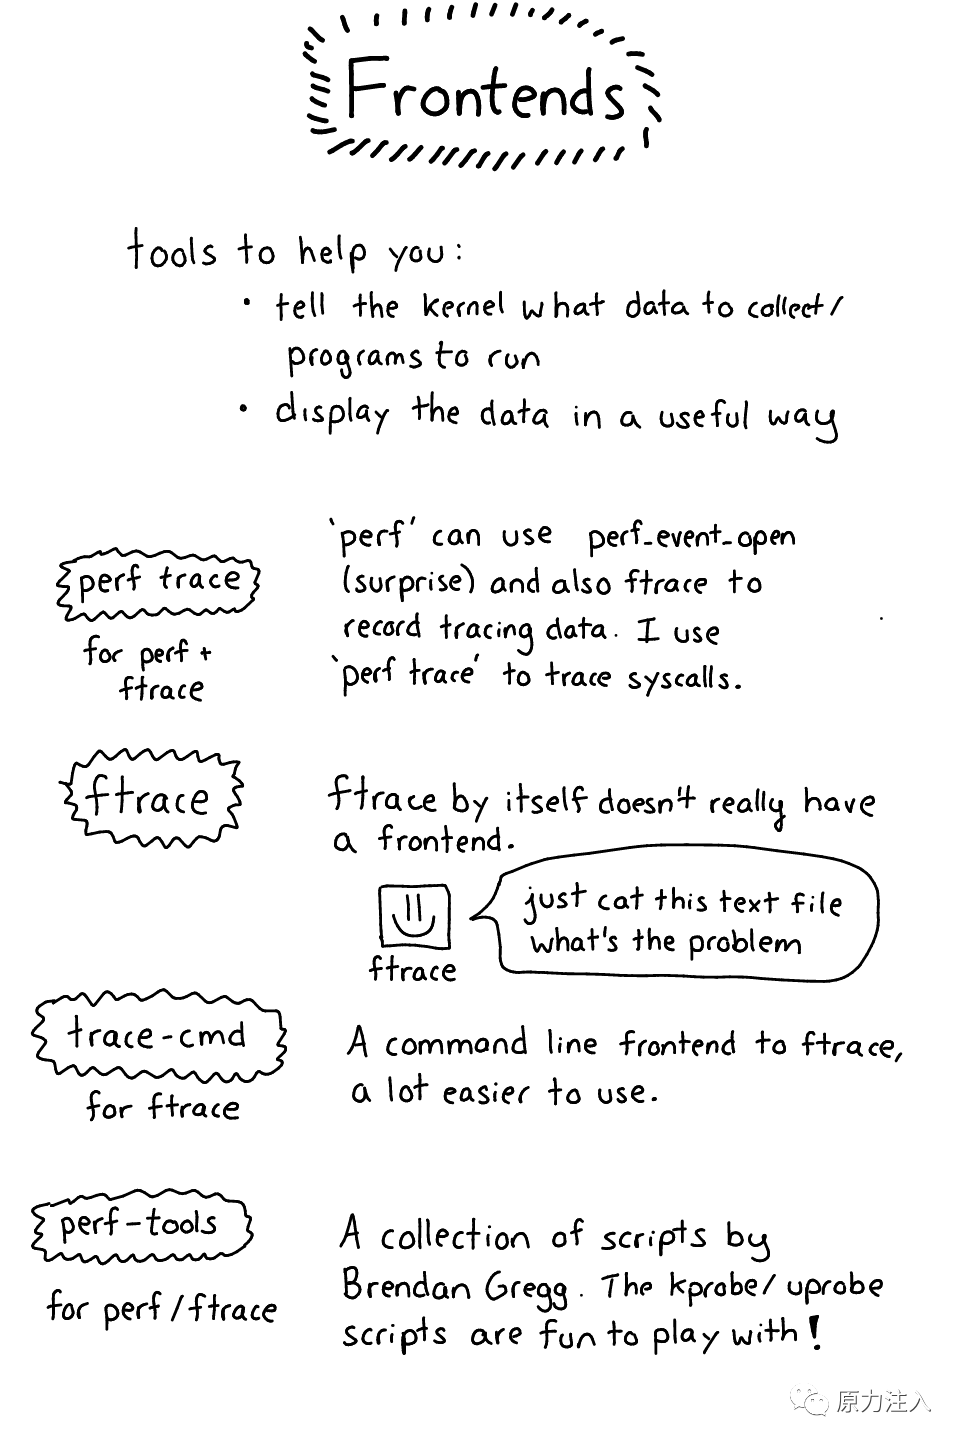 Frontends
tools to help you:
• tell the kernel what data to collect/
programs to run
• display the data in a useful way
perf trace
for perf +
ftrace
'perf' can use perf_event_open
(surprise) and also ftrace to
record tracing data. I use
'perf trace' to trace syscalls.
ftrace
ftrace by itself doesn't really have
a frontend.
just cat this text file
what's the problem
ftrace
trace-cmd
for ftrace
A command line frontend to ftrace,
a lot easier to use.
perf-tools
for perf/ftrace
A collection of scripts by
Brendan Gregg. The kprobe/uprobe
scripts are fun to play with!
原力注入